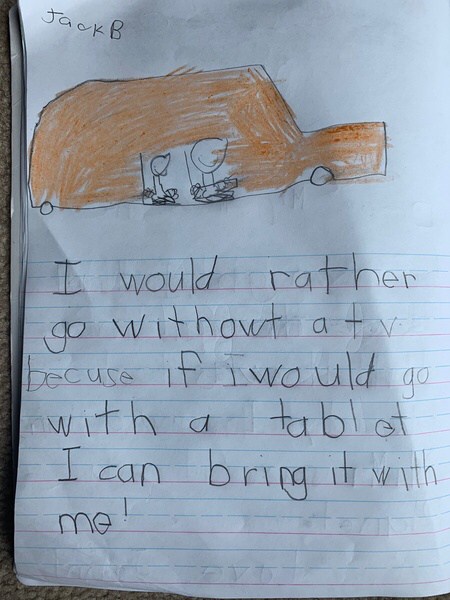 Jack B
I would rather
go without a t v.
becuse if i would go
with a tablet
I can bring it with
me!